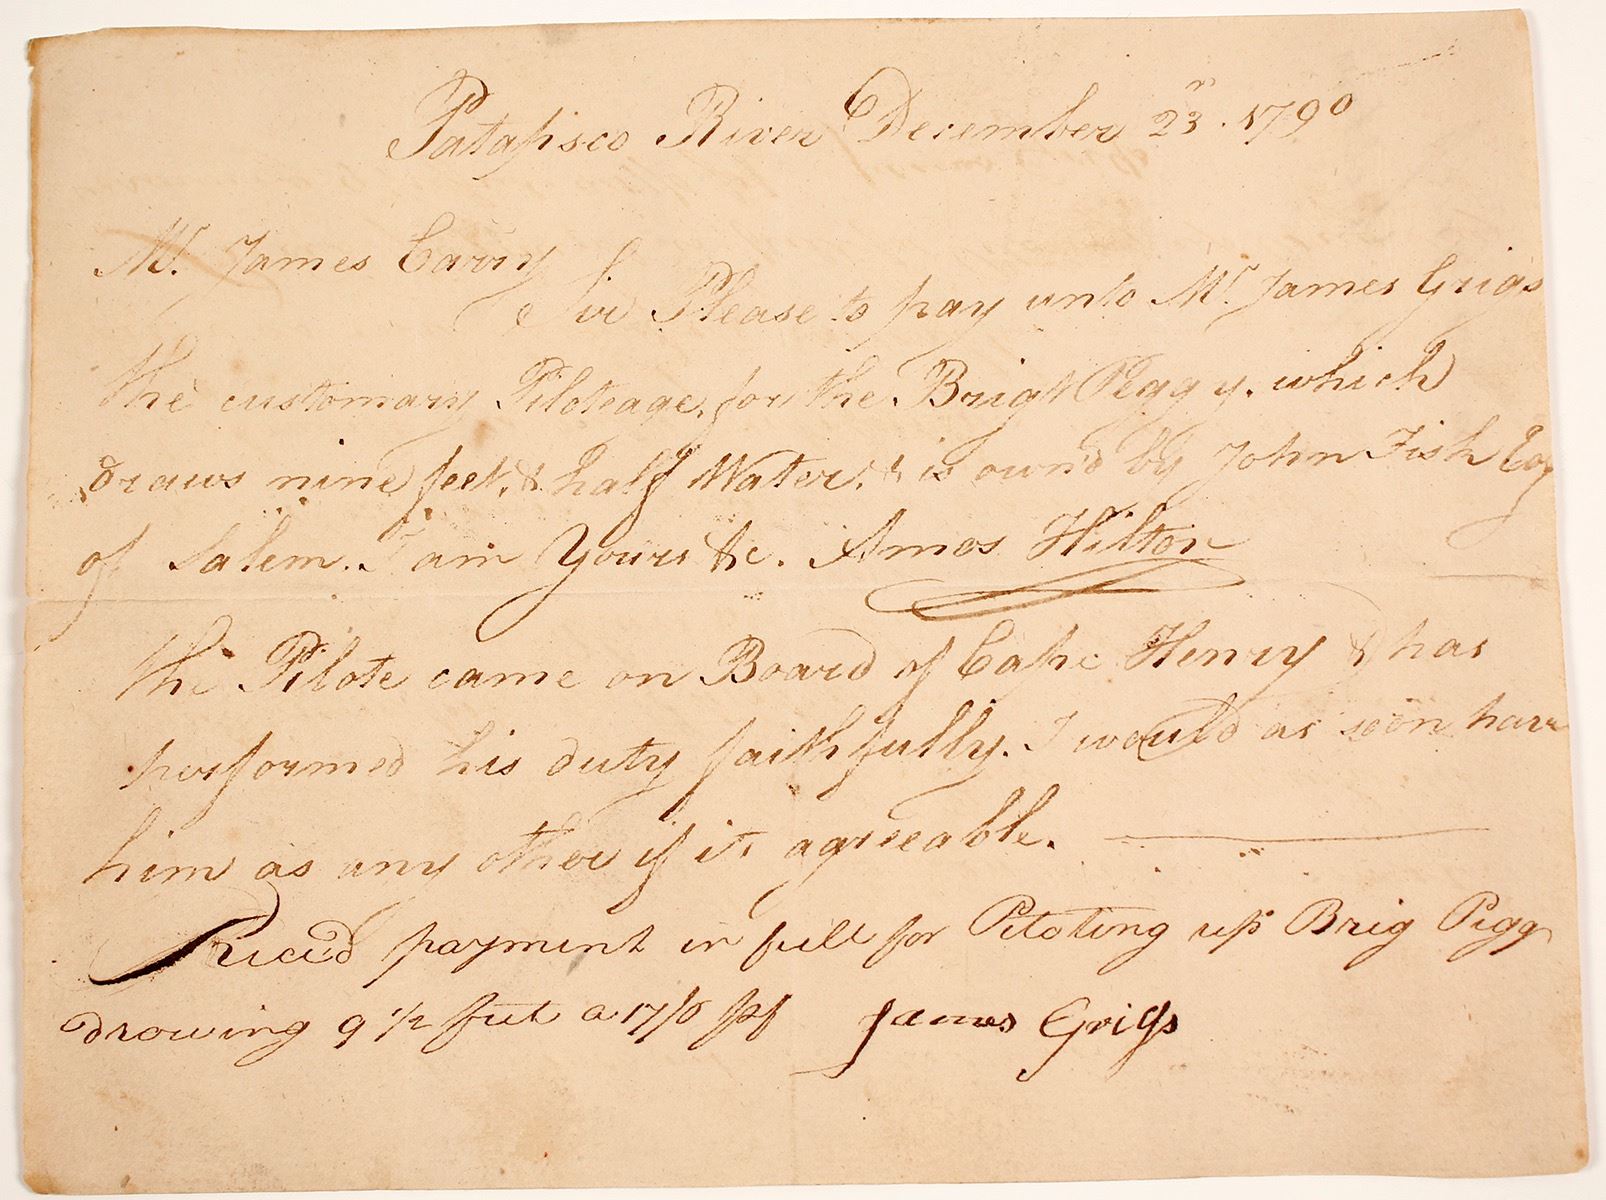 Patapsco River December 23ʳ. 1790
Mr. James Carry
Sir Please to pay unto Mr James Grigs
the customary Piloteage, for the Brigt Peggy, which
draws nine feet, & half Water, & is own'd by John Fish Esq
of Salem. I am Yours &c. Amos Hilton
the Pilote came on Board of Cape Henry & has
performed his duty faithfully. I would as soon have
him as any other if its agreeable.
Receed payment in full for Piloting up Brig Pigg
drowing 9 1/2 feet a 17/6 pf James Grigs